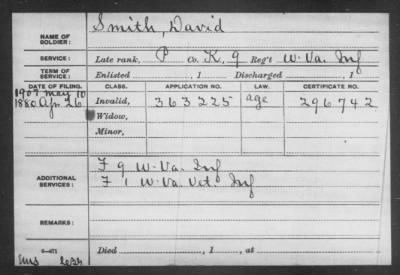 NAME OF SOLDIER: Smith, David
SERVICE: Late rank, P Co. K, 9 Reg't W. Va. Inf
TERM OF SERVICE: Enlisted , 1 Discharged , 1
DATE OF FILING. CLASS. APPLICATION NO. LAW. CERTIFICATE NO.
1907 May 10
1880 Apr 26 Invalid, 363225 age 296742
Widow,
Minor,
ADDITIONAL SERVICES: F 9 W. Va. Inf
F 1 W. Va. Vet. Inf
REMARKS:
Died , 1 , at